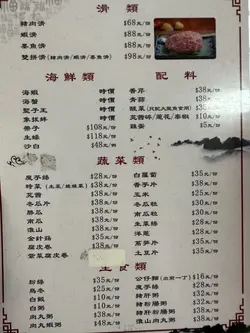 滑類
豬肉滑 $68元/份
蝦滑 $88元/份
墨魚滑 $88元/份
雙拼滑 (豬肉滑/蝦滑/墨魚滑) $98元/份
海鮮類
海蝦 時價
海蟹 時價
聖子王 時價
象拔蚌 時價
帶子 $108元/份
生蠔 $48元/份
沙白 $48元/份
配料
香芹 $38元/份
青蒜 $38元/份
酸菜 $38元/份
芫茜碎/蔥花/辣椒 $10元/份
雞蛋 $5元/份
蔬菜類
魔芋絲 $28元/份
時菜 $38元/份
芫茜 $38元/份
冬瓜 $38元/份
勝瓜 $38元/份
南瓜 $38元/份
淮山 $38元/份
金針菇 $38元/份
腐皮卷 $38元/份
紫菜腐皮卷 $38元/份
白蘿蔔 $35元/份
香芋片 $35元/份
粟米 $35元/份
冬瓜粒 $35元/份
南瓜粒 $35元/份
生菜 $35元/份
洋蔥 $35元/份
萵筍片 $35元/份
土豆片 $35元/份
主食類
粉絲 $35元/份
烏冬 $25元/份
白飯 $10元/份
白粥 $10元/份
肉丸粥 $38元/份
肉丸蝦粥 $48元/份
公仔麵 $16元/份
魔芋絲 $28元/份
豬肝粥 $38元/份
豬粉腸粥 $38元/份
豬肝粉腸粥 $38元/份
淮山肉丸粥 $38元/份